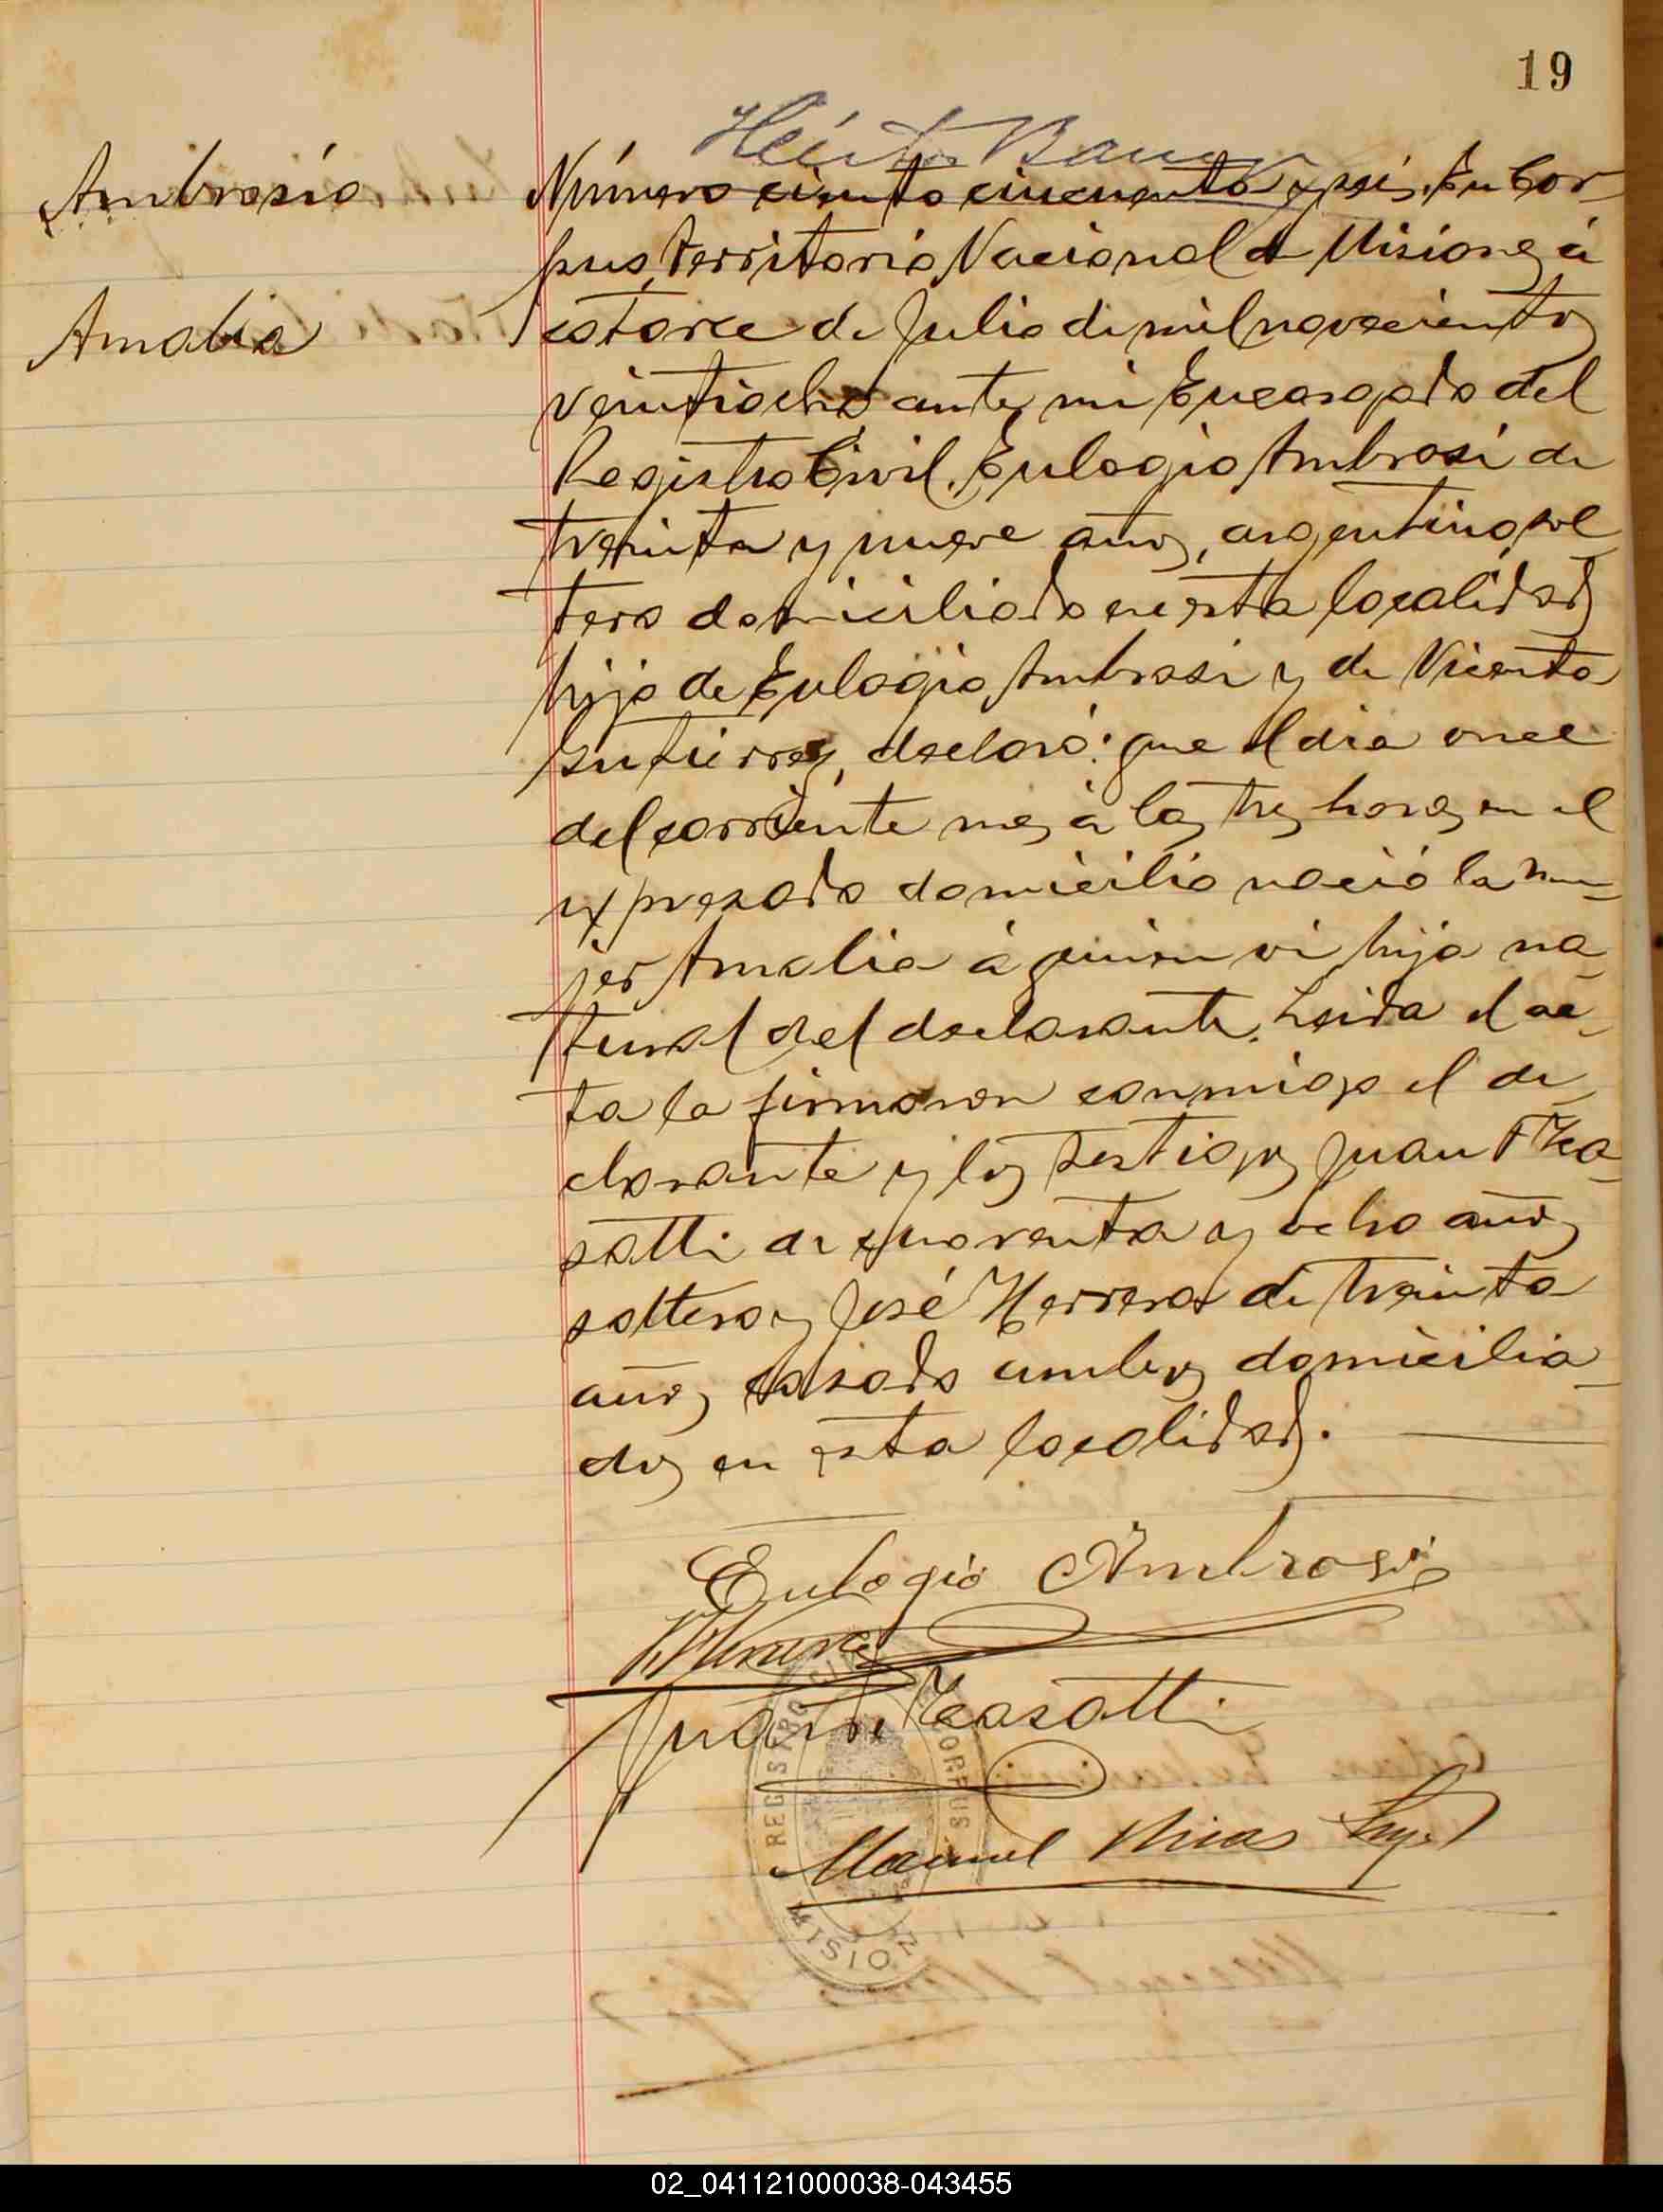 19
Ambrosio
Amalia
Número ciento cincuenta y seis. En Cor-
pus, Territorio Nacional de Misiones á
catorce de Julio de mil novecientos
veintiocho, ante, mi Encargado del
Registro Civil. Eulogio Ambrosi de
treinta y nueve años, argentino, sol
tero domiciliado en esta localidad
hijo de Eulogio Ambrosi y de Vicenta
Gutierrez, declaró: que el dia once
del corriente mes á las tres horas en el
expresado domicilio nació la mu-
jer Amalia á quien vi hija na-
tural del declarante. Leida el ac-
ta la firmaron conmigo el de-
clarante y los testigos Juan
satti de cuarenta y ocho años
soltero y José Herrera de treinta
años casado ambos domicilia-
dos en esta localidad.
Eulogio Ambrosi
Herrera
Juan
REGISTRO CIVIL
CORPUS
MISIONES
Manuel
02_041121000038-043455